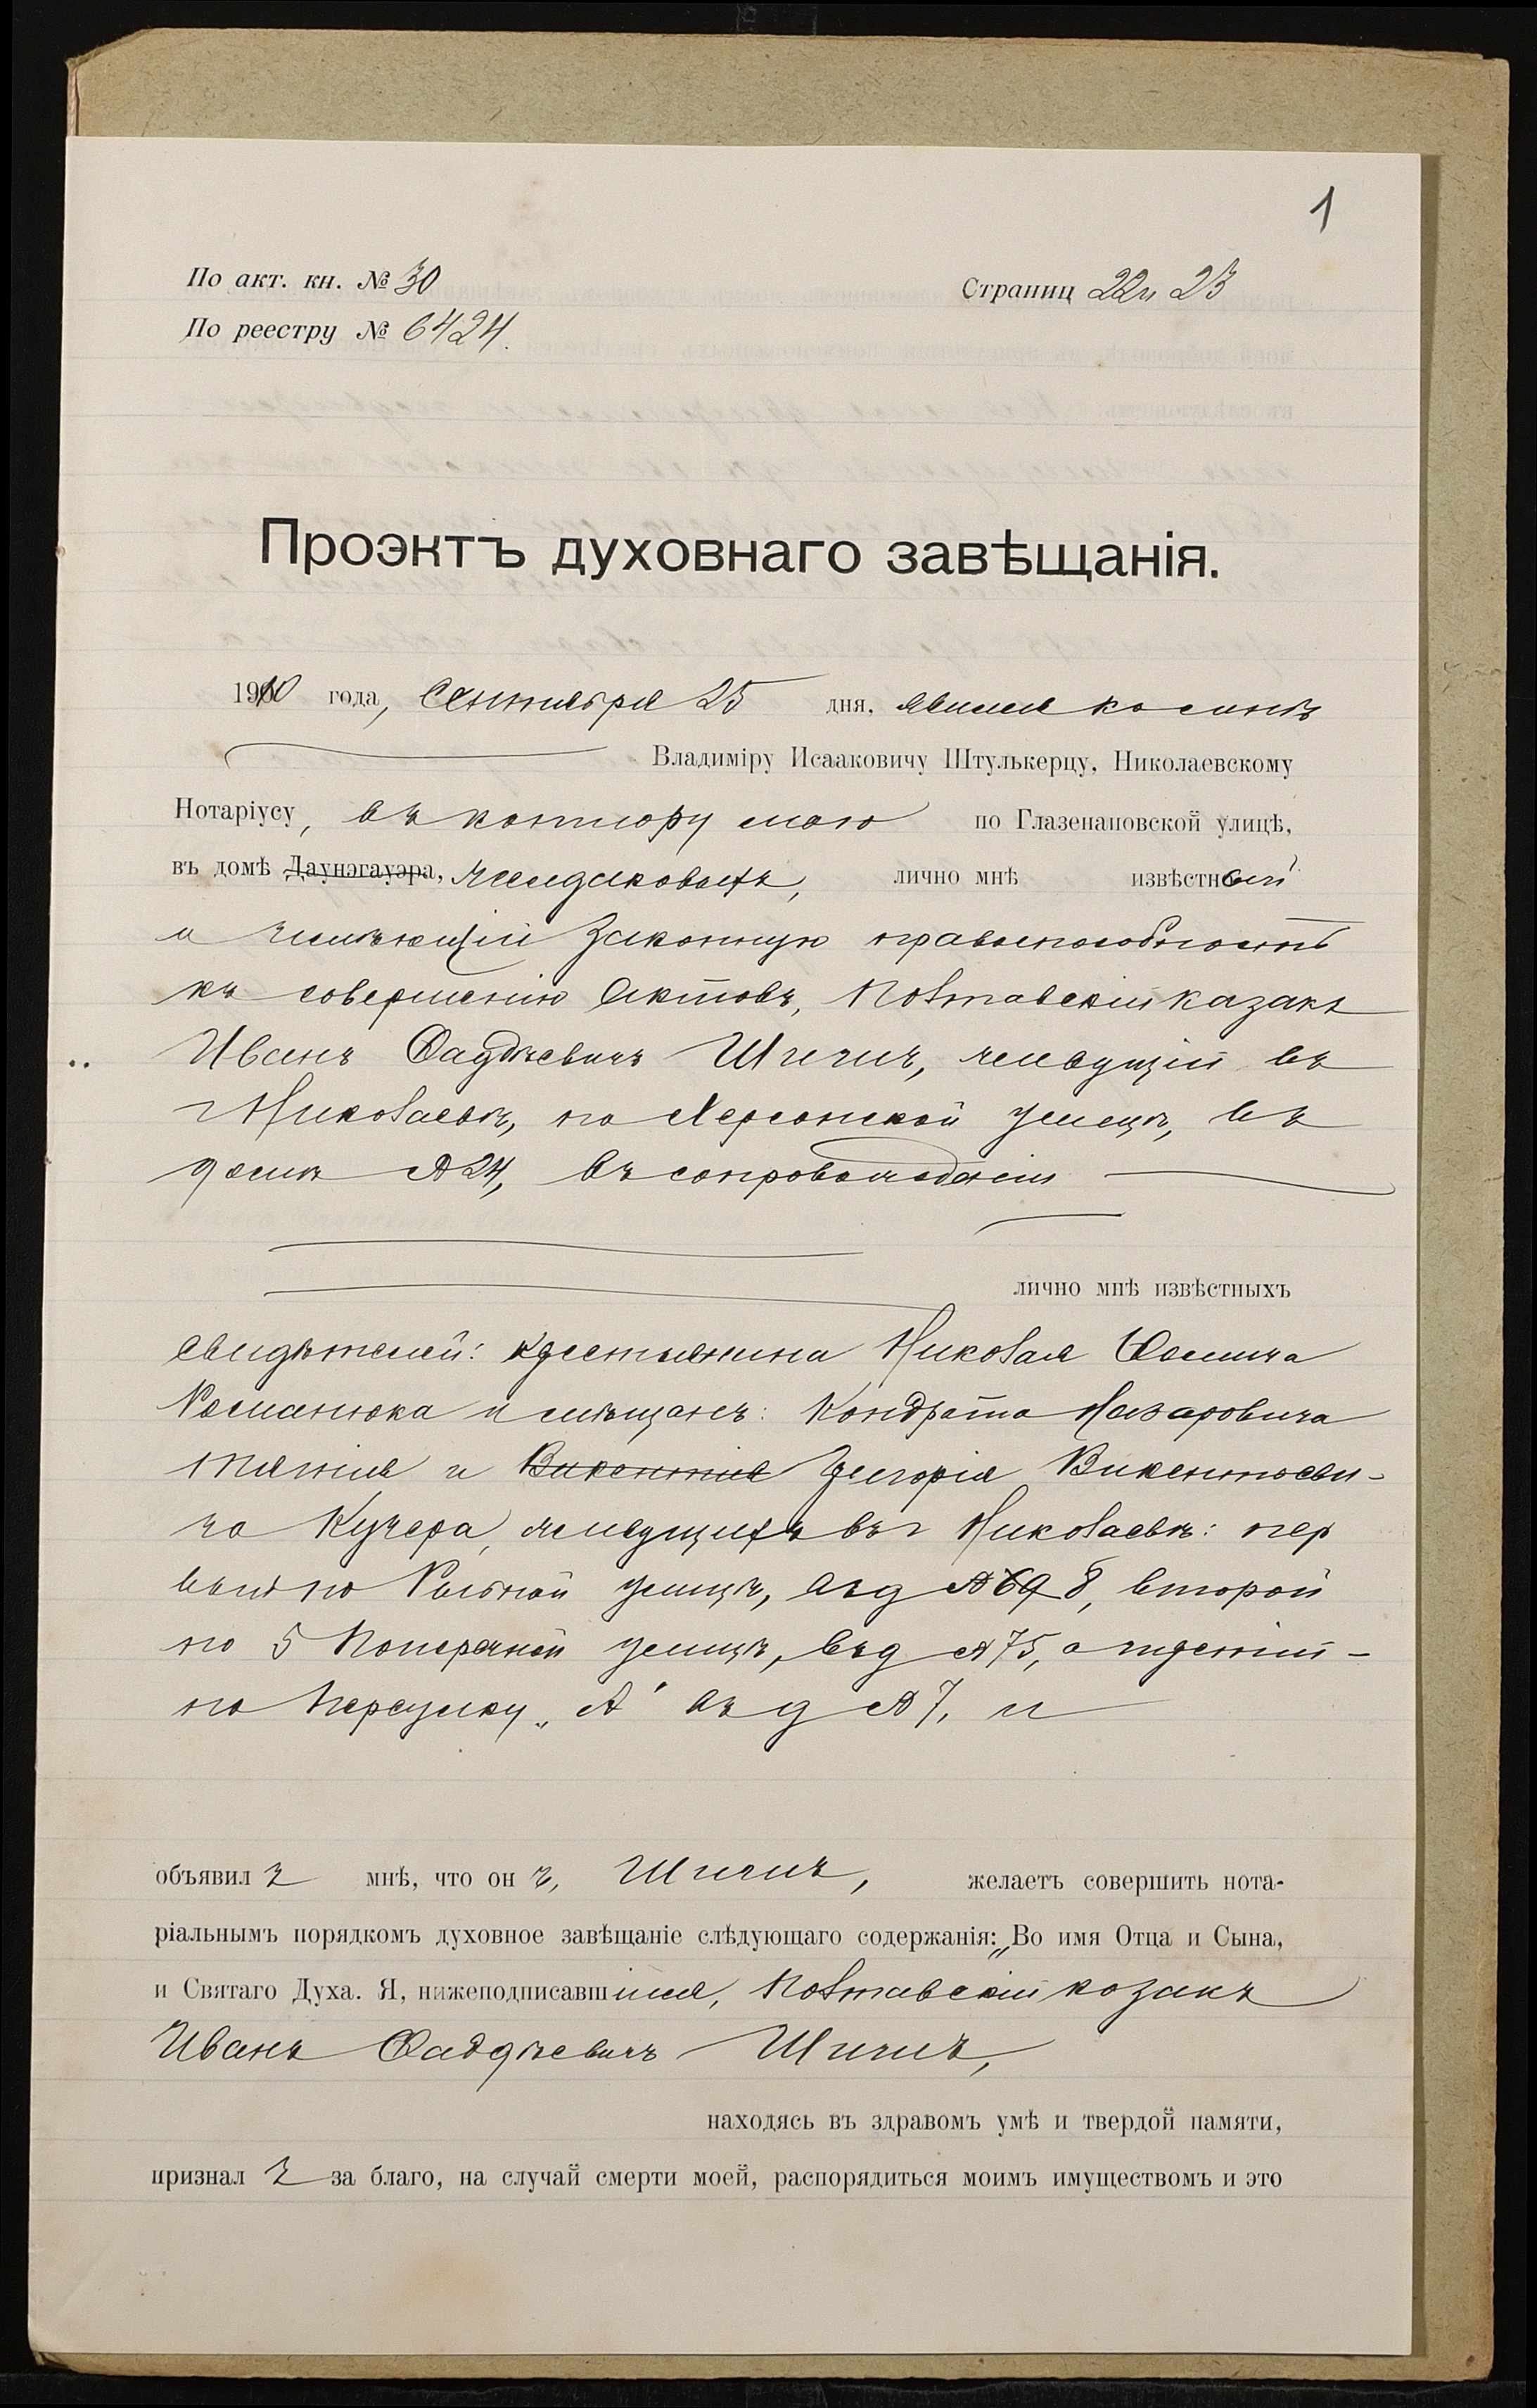 1
По акт. кн. № 30
Страниц 22 и 23
По реестру № 6424.
Проэктъ духовнаго завѣщанія.
1910 года, Сентября 25 дня, явился ко мнѣ
Владиміру Исааковичу Штулькерцу, Николаевскому
Нотаріусу, въ контору мою по Глазенаповской улицѣ,
въ домѣ Даунэгауэра, лично мнѣ извѣстный
и имѣющій законную правоспособность
къ совершенію актовъ, Полтавскій казакъ
Иванъ Фаддѣевичъ Шпичъ, живущій въ
г Николаевѣ, по Херсонской улицѣ, въ
домѣ № 24, въ сопровожденіи
лично мнѣ извѣстныхъ
свидѣтелей: крестьянина Николая Фомича
Романюка и мѣщанъ: Кондрата Назаровича
и Викентія Григорія Викентьеви-
ча Кучера, живущихъ въ г Николаевѣ: пер
вый по Рыбной улицѣ, въ д № 8, второй
по 5 Поперечной улицѣ, въ д № 75, а третій -
по переулку „А" въ д № 7, и
объявилъ мнѣ, что онъ, Шпичъ, желаетъ совершить нота-
ріальнымъ порядкомъ духовное завѣщаніе слѣдующаго содержанія: „Во имя Отца и Сына,
и Святаго Духа. Я, нижеподписавшійся, Полтавскій козакъ
Иванъ Фаддѣевичъ Шпичъ,
находясь въ здравомъ умѣ и твердой памяти,
призналъ за благо, на случай смерти моей, распорядиться моимъ имуществомъ и это